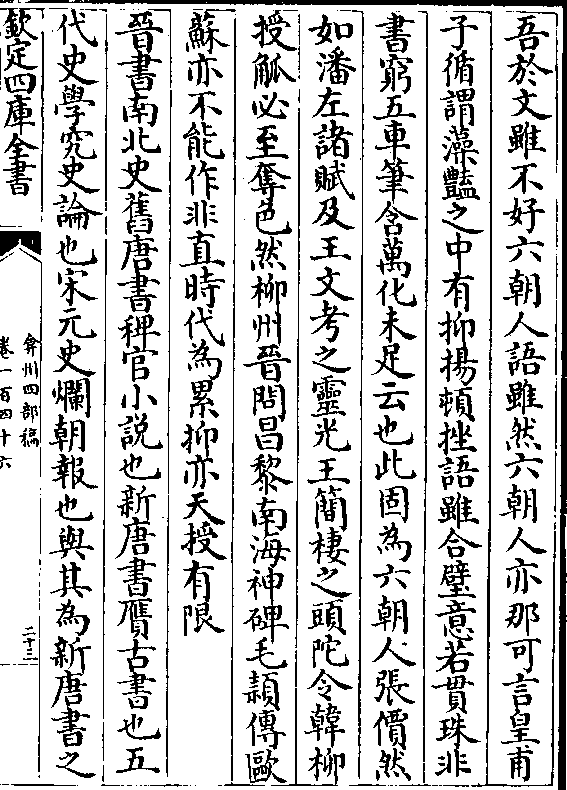 吾於文雖不好六朝人語雖然六朝人亦那可言皇甫
子循謂藻豔之中有抑揚頓挫語雖合璧意若貫珠非
書窮五車筆含萬化未足云也此固為六朝人張價然
如潘左諸賦及王文考之靈光王簡棲之頭陀令韓柳
授觚必至奪色然柳州晉問昌黎南海神碑毛頴傳歐
蘇亦不能作非直時代為累抑亦天授有限
晉書南北史舊唐書稗官小說也新唐書贋古書也五
代史學究史論也宋元史爛朝報也與其為新唐書之
欽定四庫全書
弇州四部稿
卷一百四十六
二十三